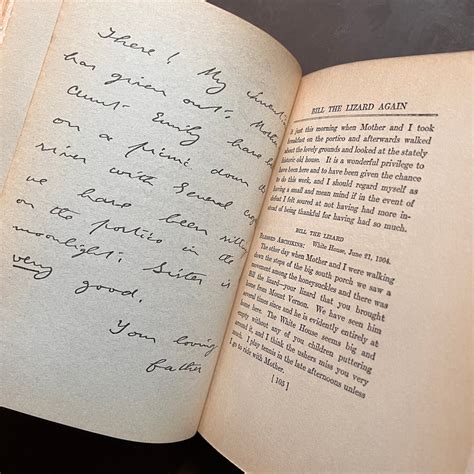 There! My inventi
has given out. Mother
Aunt Emily have be
on a picnic down t
river with General
we have been sitti
on the portico in the
moonlight. Sister is
very good.
Your loving
father
BILL THE LIZARD AGAIN
just this morning when Mother and I took
breakfast on the portico and afterwards walked
about the lovely grounds and looked at the stately
historic old house. It is a wonderful privilege to
have been here and to have been given the chance
to do this work, and I should regard myself as
having a small and mean mind if in the event of
defeat I felt soured at not having had more in-
stead of being thankful for having had so much.
BILL THE LIZARD
White House, June 21, 1904.
BLESSED ARCHIKINS:
The other day when Mother and I were walking
down the steps of the big south porch we saw a
movement among the honeysuckles and there was
Bill the lizard—your lizard that you brought
home from Mount Vernon. We have seen him
several times since and he is evidently entirely at
home here. The White House seems big and
empty without any of you children puttering
around it, and I think the ushers miss you very
much. I play tennis in the late afternoons unless
I go to ride with Mother.
[ 105 ]